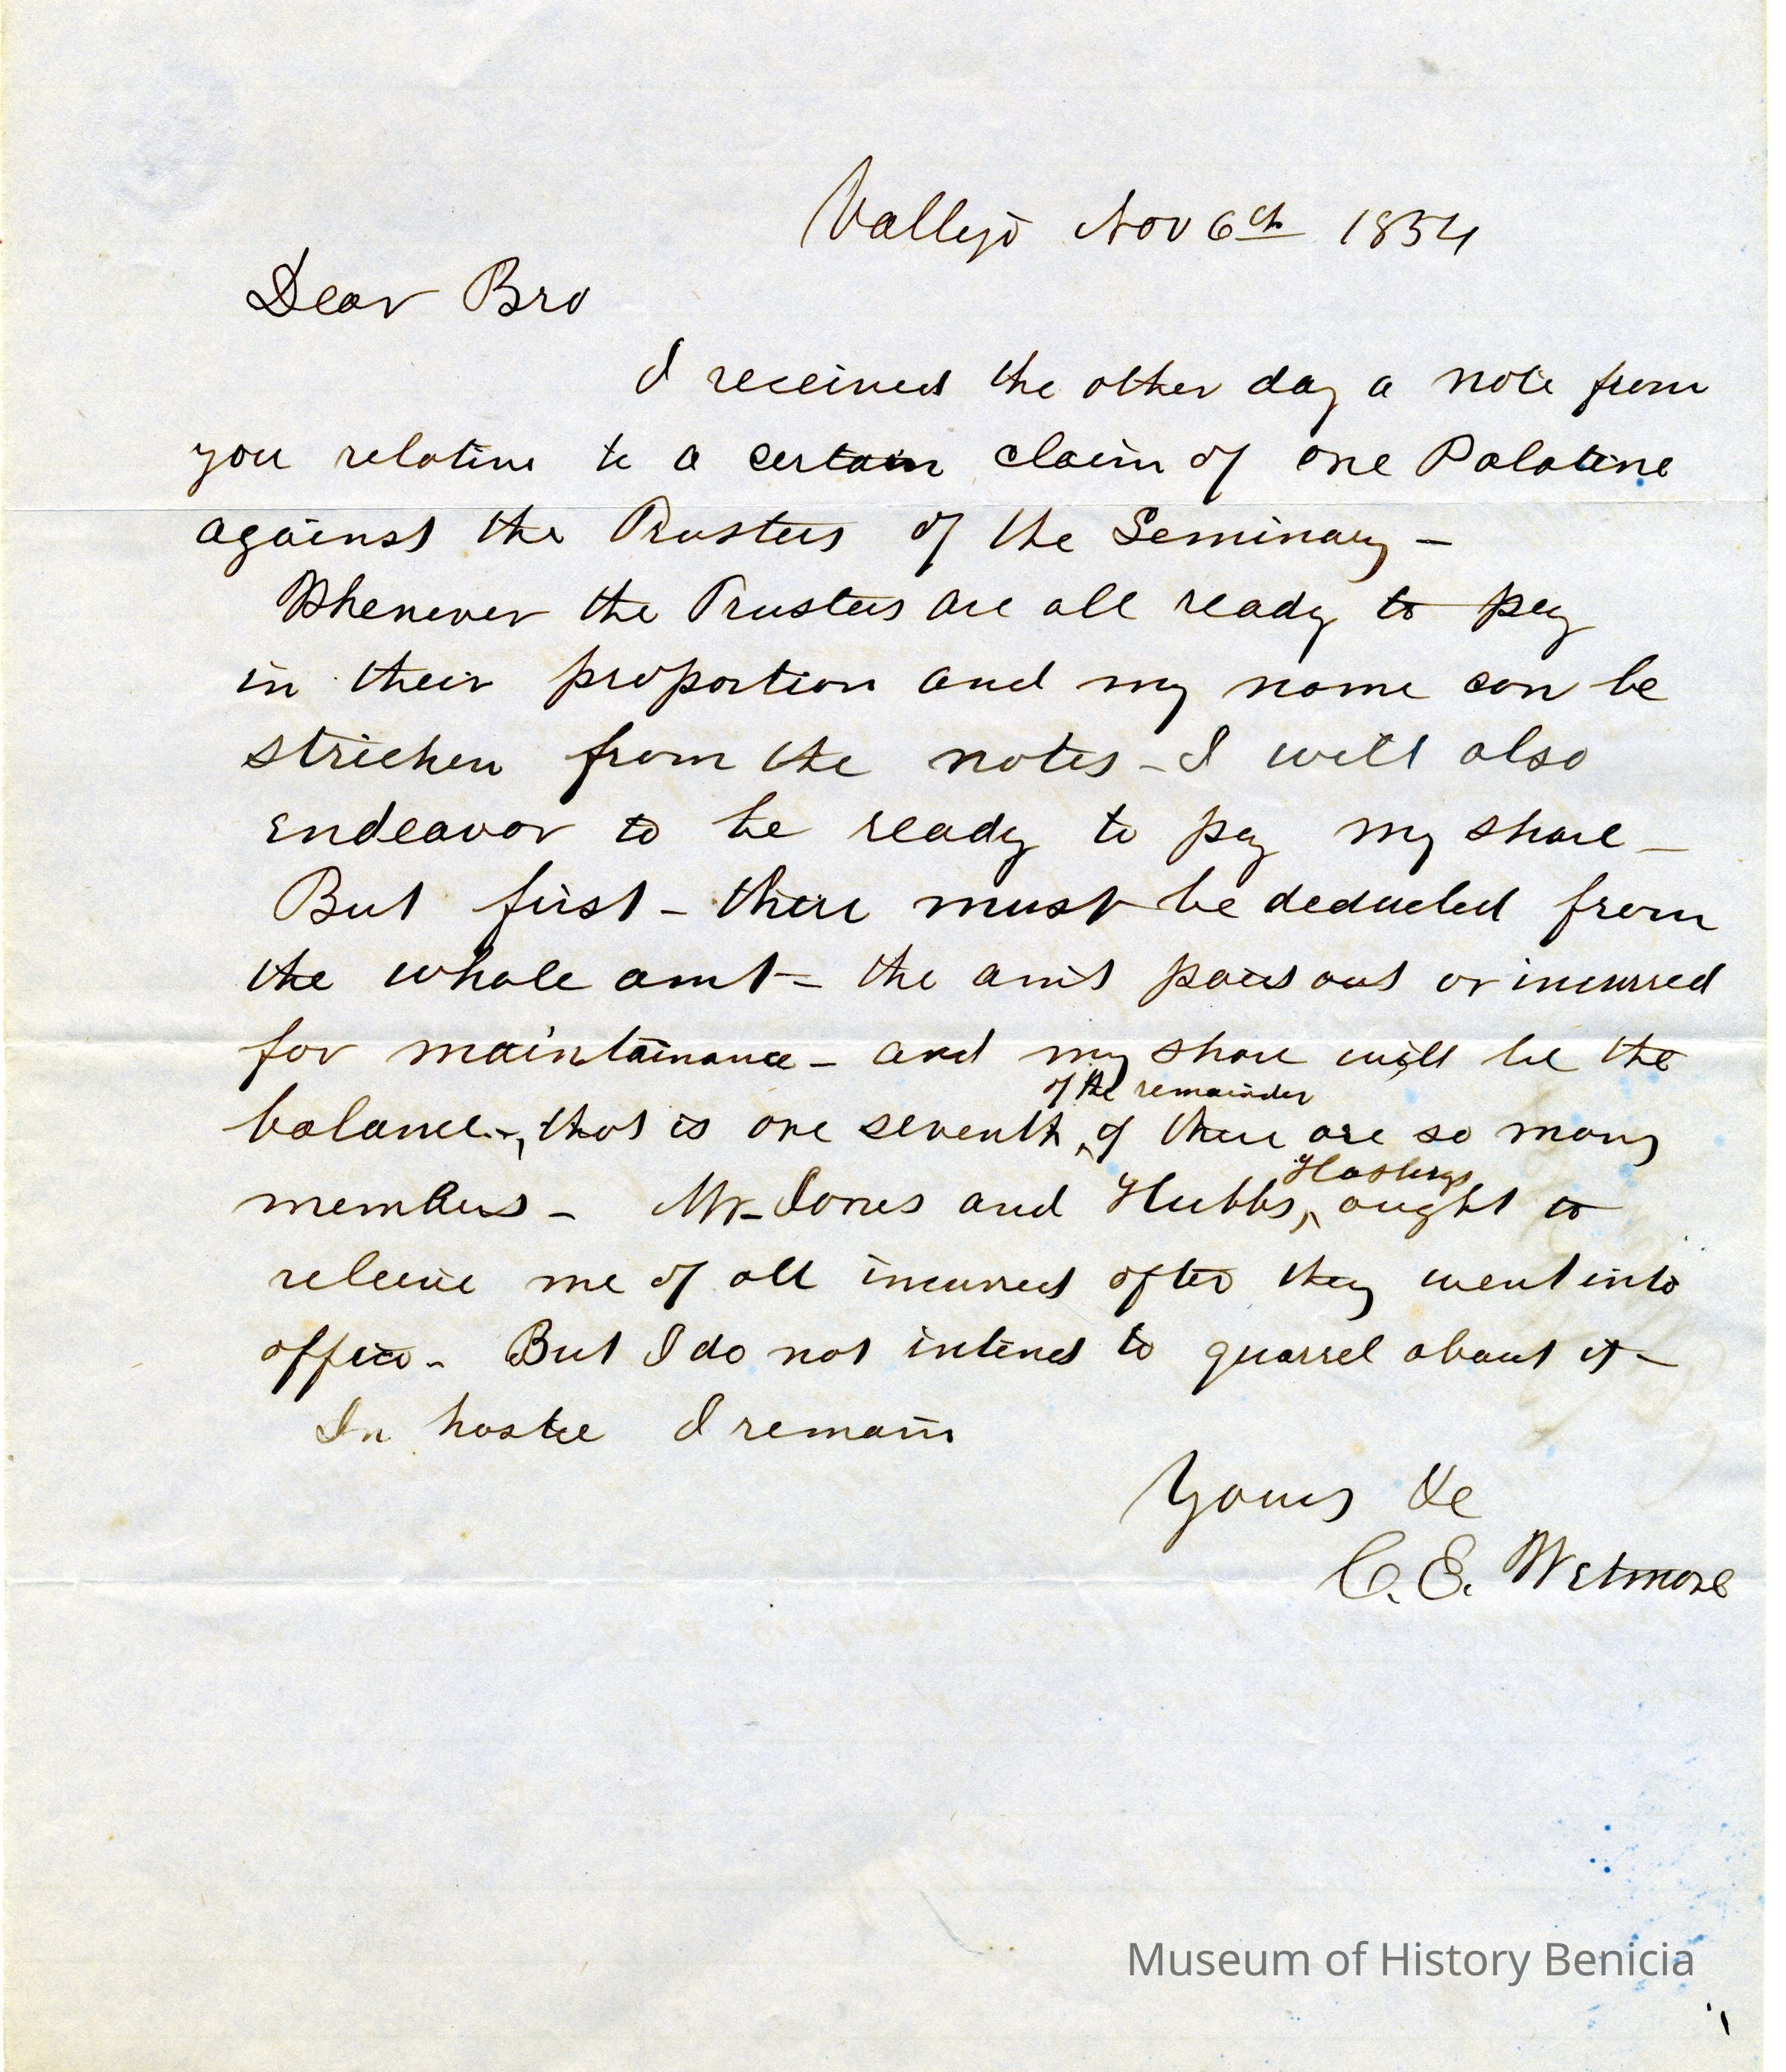 Vallejo Nov 6th 1854
Dear Bro
I received the other day a note from
you relative to a certain claim of one Palatine
against the Trustees of the Seminary –
Whenever the Trustees are all ready to pay
in their proportion and my name can be
stricken from the notes – I will also
endeavor to be ready to pay my share –
But first – there must be deducted from
the whole amt – the amt paid out or incurred
for maintainance – and my share will be the
balance –, that is one seventh of the remainder, if there are so many
members – Mr Jones and Hubbs, Hastings ought to
releive me of all incurred after they went into
office – But I do not intend to quarrel about it –
In haste I remain
Yours &c
C. E. Wetmore
Museum of History Benicia